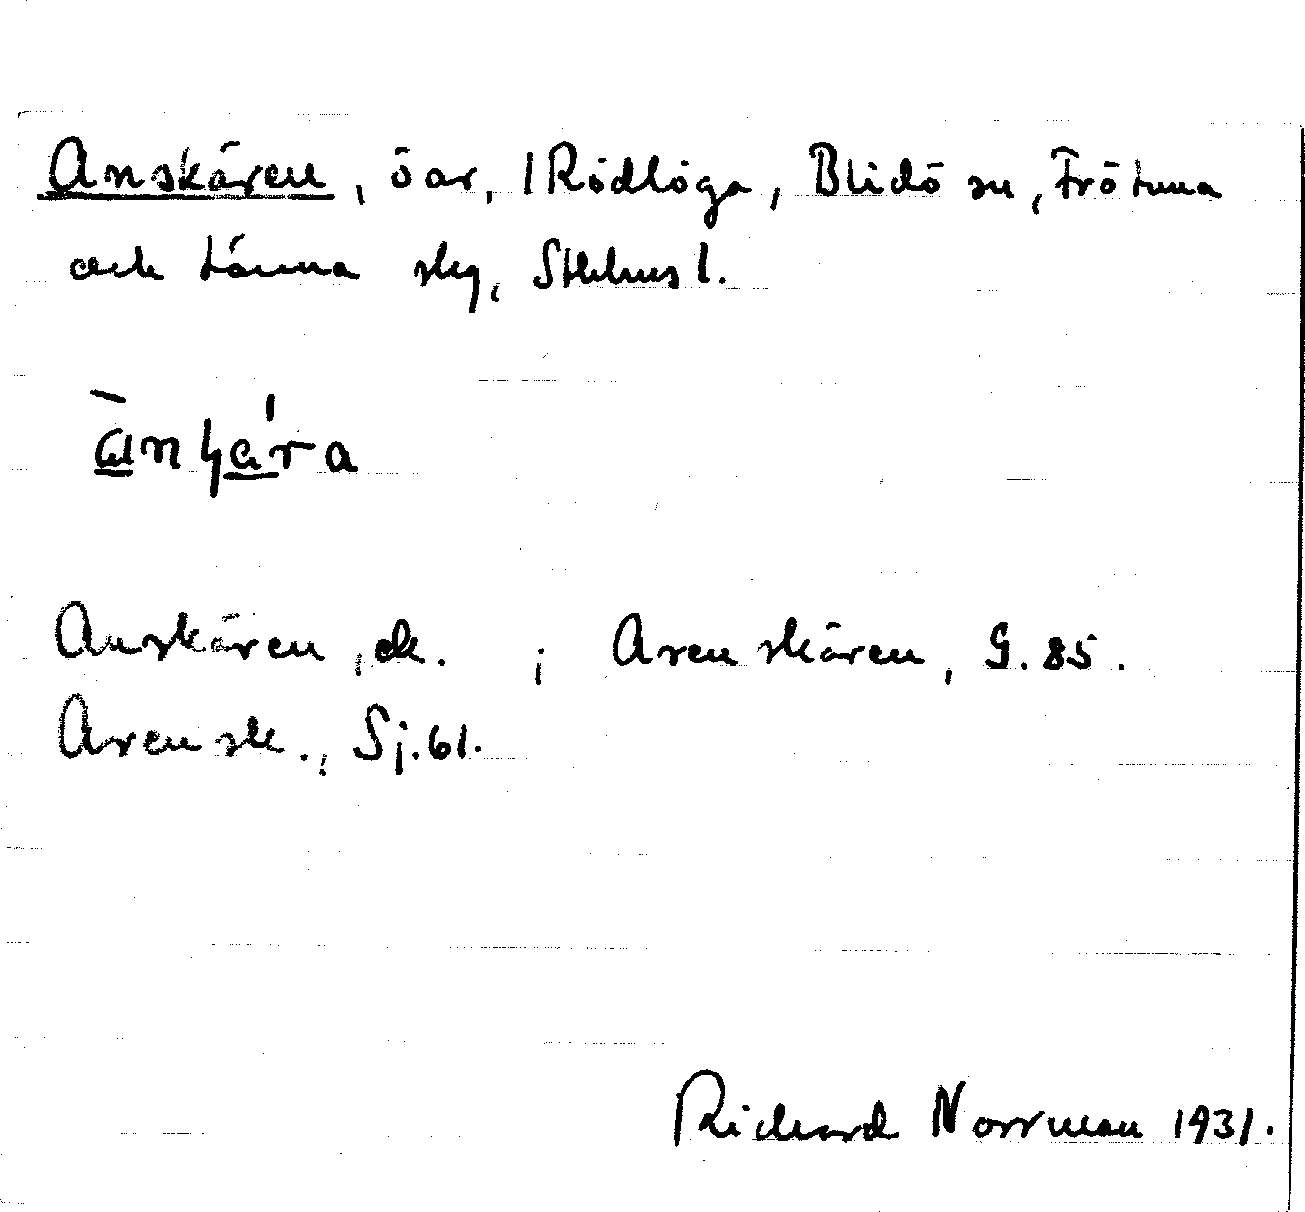 Anskären, öar, 1 Rödlöga, Blidö sn, Frötuna
och Länna skg, Sthlms l.
Anskären, ek. ; Arenskären, G. 85.
Arensk., Sj. 61.
Richard Norrman 1931.